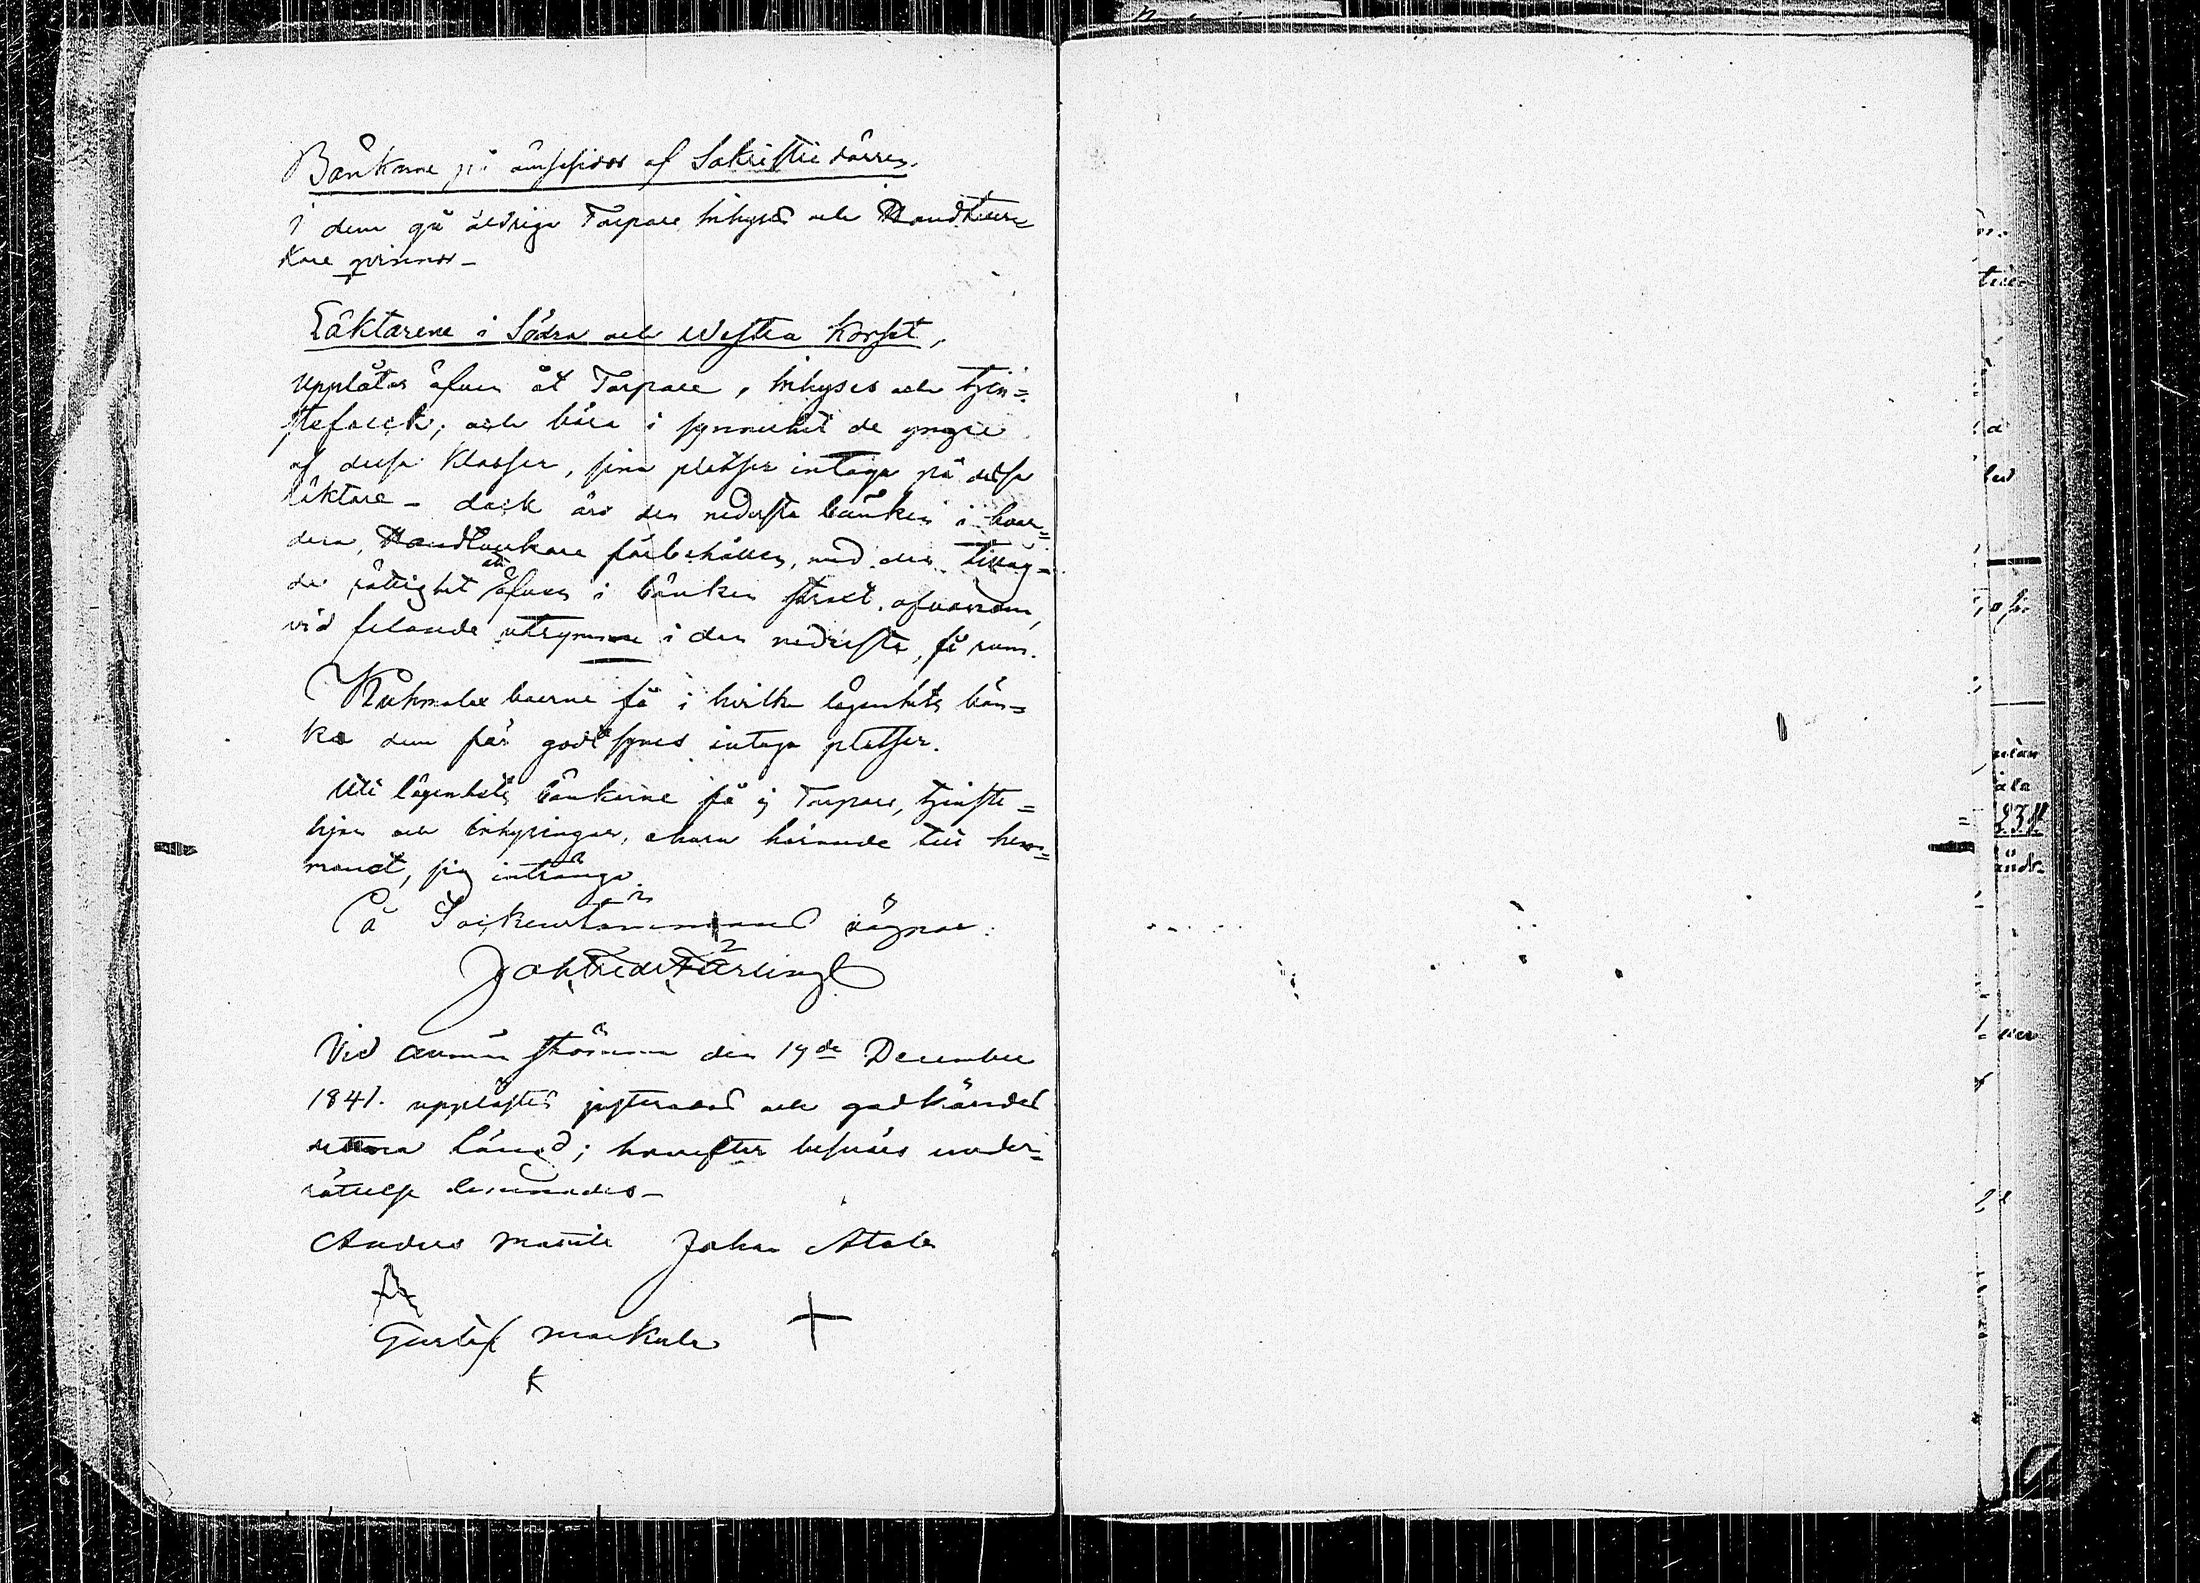 Bänkarne på ömse sidor af Sakristie dörren.
I dem gå åldriga Torpare Inhyses och Handtver
kare qvinnor –
Läktarene i Södra och Westra Korset,
upplåtas äfven åt Torpare, Inhyses och tjen=
stefolck; och böra i synnerhet de yngre
af dessa Klasser, sina platser intaga på dessa
läktare – dock äro den nedersta bänken i hvar=
dera, Handtverkare förbehållen, med den tillag=
da rättighet att äfven i bänken strax ofvanom,
vid felande utrymme i den nedersta, få rum.
boerne få i hvilka lägenhets bän=
kar dem för godt synes intaga platser.
Uti lägenhets bänkarne få ej Torpare, tjenste=
hjon och Inhysingar, ehuru hörande till hem=
manet, sig intränga.
På Sockenstämmans vägnar:
Joh Fredr Färling
Vid allmän stämma den 19de December
1841. upplästes justerades och godkändes
denna längd; hvarefter besvärs under=
rättelse lemnades –
Anders Johan
Gustaf Markula
K